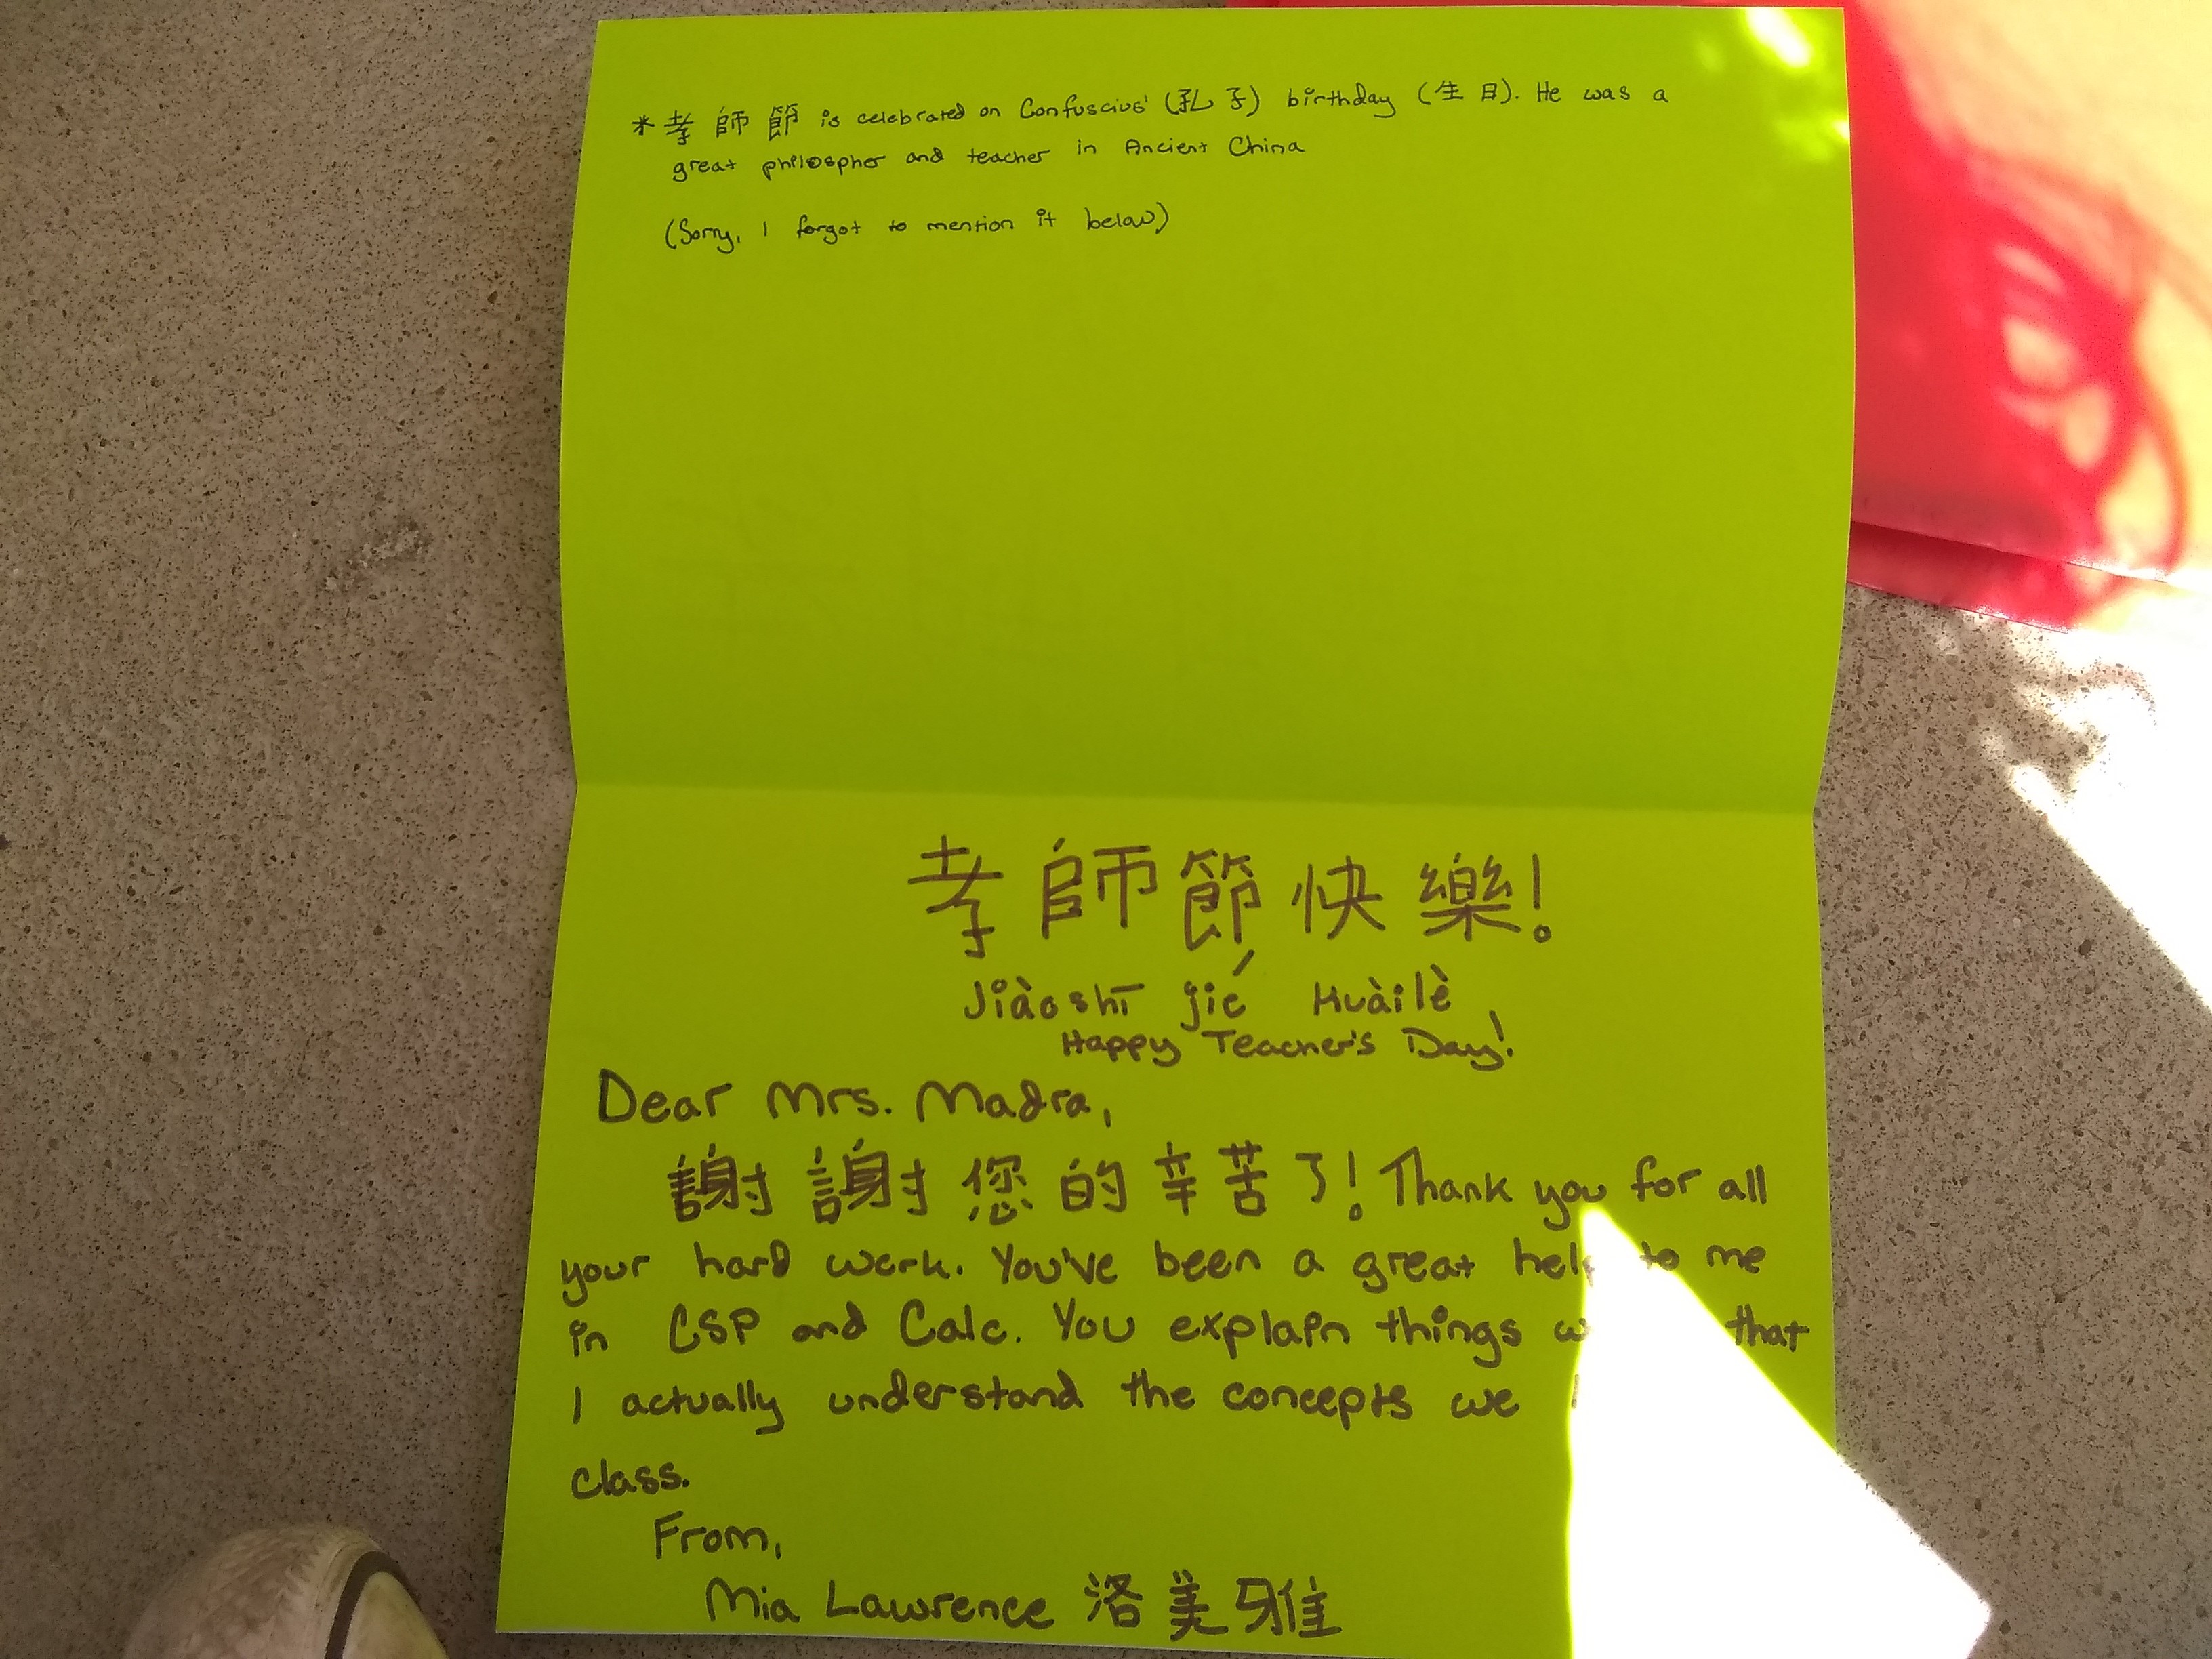 *孝師節 is celebrated on Confuscius' (孔子) birthday (生日). He was a
great philospher and teacher in Ancient China
(Sorry, I forgot to mention it below)
孝師節快樂!
Jiàoshī jié Kuàilè
Happy Teacher's Day!
Dear Mrs. Madra,
謝謝您的辛苦了! Thank you for all
your hard work. You've been a great help to me
in CSP and Calc. You explain things that
I actually understand the concepts we
class.
From,
Mia Lawrence 洛美雅